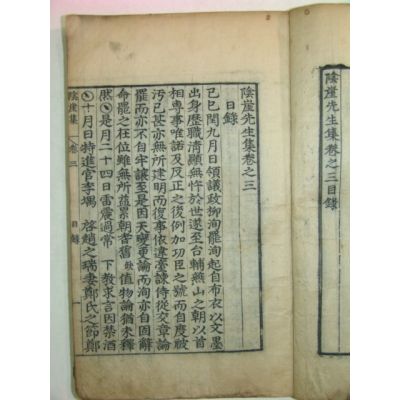 陰崖先生集卷之三目錄
陰崖先生集卷之三
日錄
己巳閏九月日領議政柳洵罷洵起自布衣以文墨
出身歷職淸顯無忤於世遂至台輔燕山之朝以首
相專事唯諾及反正之後例加功臣之號而自度被
污已甚亦無所建明而復事依違臺諫侍從交章論
罷而亦不自牢讓至是因天變更論而洵亦自固辭
命罷之在位雖無所蘊累朝耆舊故値物論猶未釋
然○是月二十四日雷震過常 下敎求言因禁酒
○十月日特進官李堣 啓趙之瑞妻鄭氏之節鄭
陰崖集 卷三 日錄 一